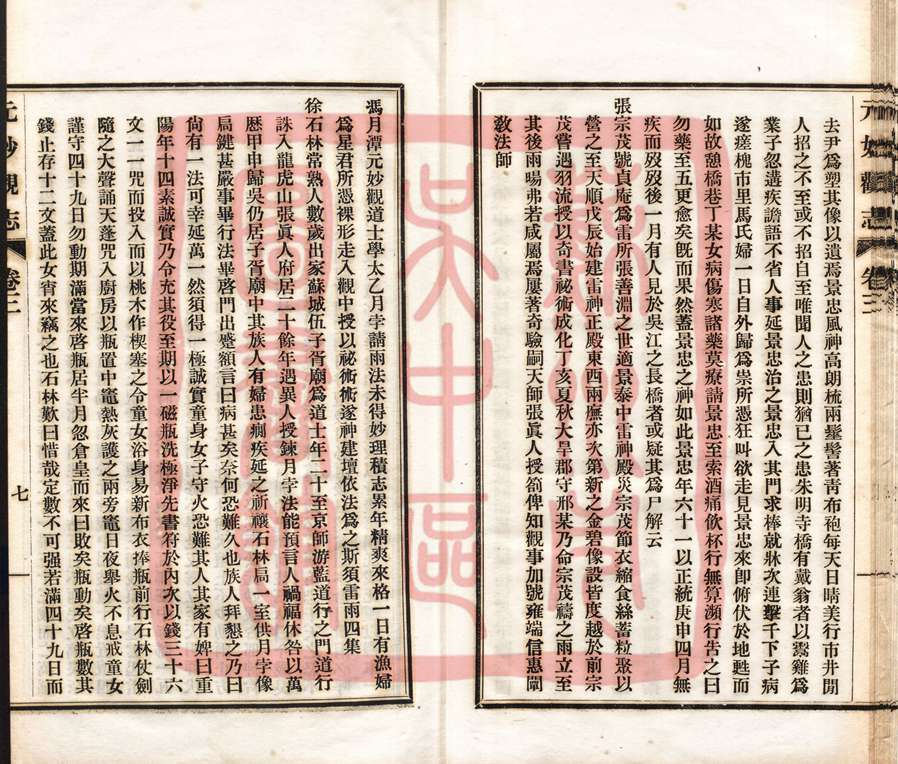 去尹爲塑其像以遺焉景忠風神高朗梳兩髽髻著靑布袍每天日晴美行市井閒
人招之不至或不招自至唯聞人之患則猶已之患朱明寺橋有戴翁者以鬻雞爲
業子忽遘疾譫語不省人事延景忠治之景忠入其門求棒就牀次連擊千下子病
遂瘥槐市里馬氏婦一日自外歸爲祟所憑狂叫欲走見景忠來卽俯伏於地甦而
如故憩橋巷丁某女病傷寒諸藥莫療請景忠至索酒痛飮杯行無算瀕行告之曰
勿藥至五更愈矣旣而果然蓋景忠之神如此景忠年六十一以正統庚申四月無
疾而歿歿後一月有人見於吳江之長橋者或疑其爲尸解云
張宗茂號貞庵爲雷所張善淵之世適景泰中雷神殿災宗茂節衣縮食絲蓄粒聚以
營之至天順戊辰始建雷神正殿東西兩廡亦次第新之金碧像設皆度越於前宗
茂嘗遇羽流授以奇書祕術成化丁亥夏秋大旱郡守邢某乃命宗茂禱之雨立至
其後雨暘弗若咸屬焉屢著奇驗嗣天師張眞人授箚俾知觀事加號雍端信惠闡
敎法師
元妙觀志 卷三
馮月潭元妙觀道士學太乙月孛請雨法未得妙理積志累年精爽來格一日有漁婦
爲星君所憑裸形走入觀中授以祕術術遂神建壇依法爲之斯須雷雨四集
徐石林常熟人數歲出家蘇城伍子胥廟爲道士年二十至京師游藍道行之門道行
誅入龍虎山張眞人府居二十餘年遇異人授鍊月孛法能預言人禍福休咎以萬
厯甲申歸吳仍居子胥廟中其族人有婦患癎疾延之祈禳石林扃一室供月孛像
扃鍵甚嚴事畢行法畢啓門出蹙額言曰病甚矣奈何恐難久也族人拜懇之乃曰
尙有一法可幸延萬一然須得一極誠實童身女子守火恐難其人其家有婢曰重
陽年十四素誠實乃令充其役至期以一磁瓶洗極淨先書符於內次以錢三十六
文一一咒而投入而以桃木作楔塞之令童女浴身易新布衣捧瓶前行石林仗劍
隨之大聲誦天蓬咒入廚房以瓶置中竈熱灰護之兩旁竈日夜舉火不息戒童女
謹守四十九日勿動期滿當來啓瓶居半月忽倉皇而來曰敗矣瓶動矣啓瓶數其
錢止存十二文蓋此女宵來竊之也石林歎曰惜哉定數不可强若滿四十九日而
元妙觀志 卷三
七